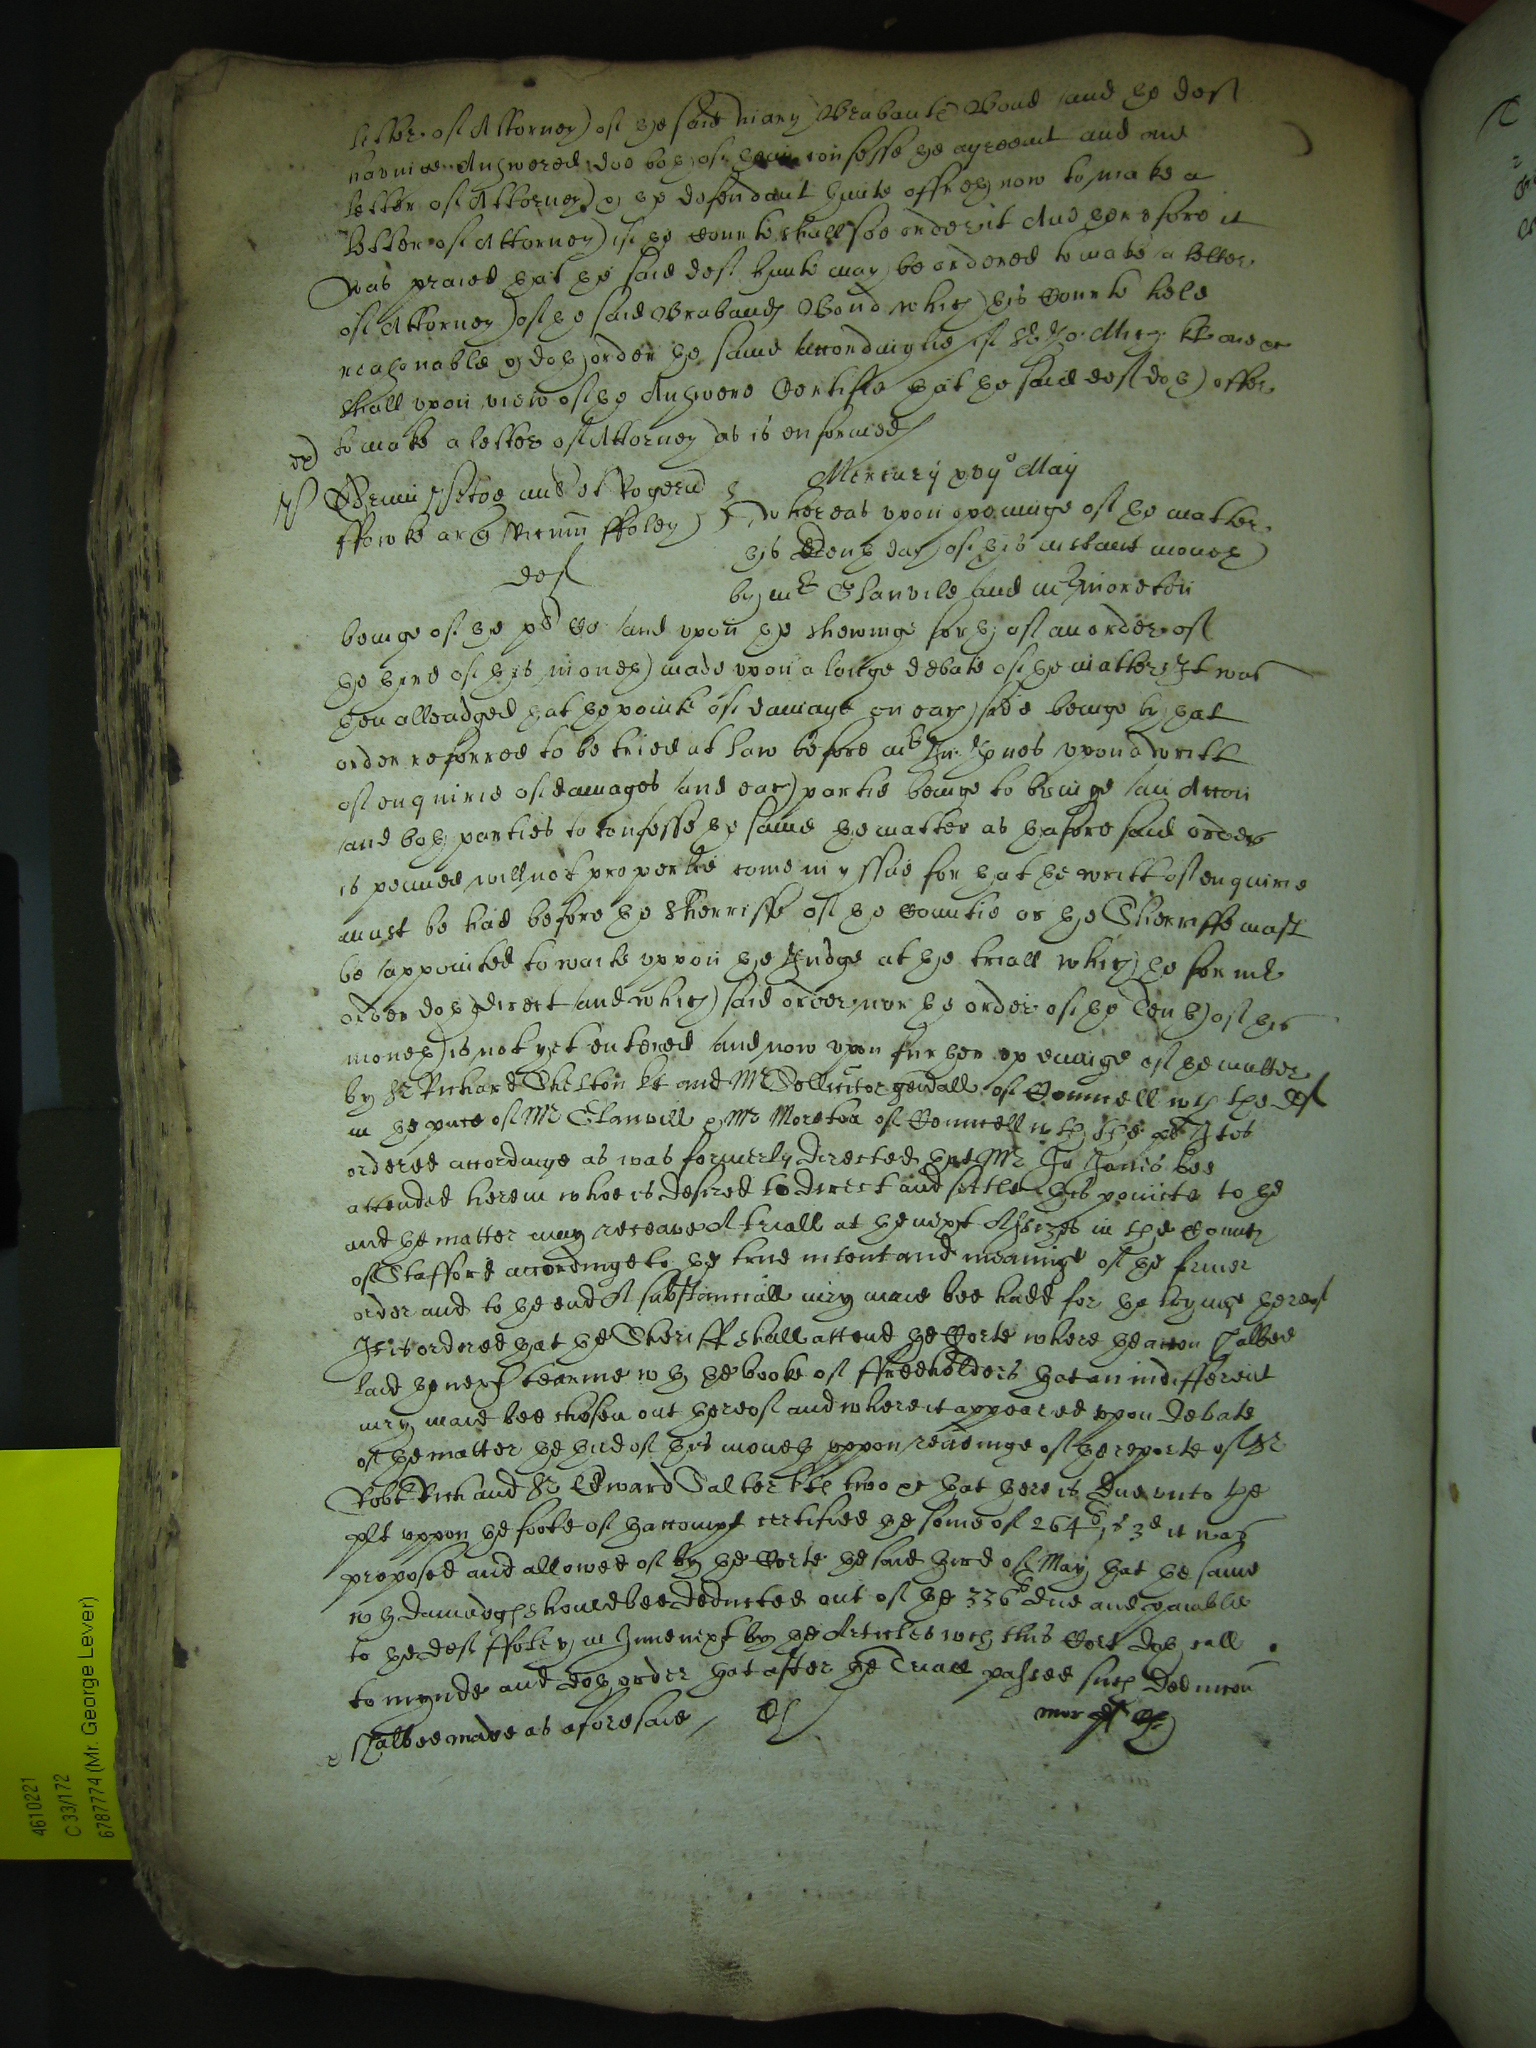 letter of Attorney of the said Mary Brabants Bond and the deft
haveinge Answered doe both of them confesse the agreemt and one
letter of Attorney & the defendant Hunte offreth now to make a
letter of Attorney if the Courte shall soe order it And therefore it
was praied that the said deft Hunte may be ordered to make a letter
of Attorney of the said Brabands Bond which this Courte held
reasonable & doth order the same accordinglie if Sr
shall upon view of the Answere Certifie that the said deft doth offer
to make a letter of Attorney as is enformed
Mercurij xvijo May
ffowke ar & ffoley
deft
whereas upon openinge of the matter
this Tenth day of this instant moneth
by mr Glanvile and mr Moreton
beinge of the pts Co and upon the shewinge forth of an order of
the third of this moneth made upon a longe debate of the matter It was
then alleadged that the pointe of damage on each side beinge by that
order referred to be tried at law before mr Ju: Jones upon a writt
of enquirie of damages and each partie beinge to bringe an Accon
and both parties to confesse the same the matter as thaforesaid order
is penned will not properlie come in yssue for that the writt of enquirie
must be had before the Sherriffe of the Countie or the Sherriffe must
be appointed to waite uppon the Judge at the triall which the formr
order doth direct and which said order nor the order of the Tenth of this
moneth is not yet entered and now upon further openinge of the matter
by Sr Richard Shelton kt and Mr Sollicitor generall of Councell wth the deft
in the pnce of Mr Glanvill & Mr Moreton of Councell wth the pt It is
ordered accordinge as was formerly directed that Mr Ju Jones bee
attended herein whoe is desired to direct and settle this pointe to the
end the matter may receave A triall at the next Assizes in the County
of Stafford accordinge to the true intent and meaninge of the former
order and to the end A substanciall iury maie bee hadd for the tryinge thereof
It is ordered that the Sheriff shall attend the Corte where the accon shalbee
laid the next tearme wth the booke of ffreeholders that an indifferent
iury maie bee chosen out thereof and where it appeared upon debate
of the matter the third of this moneth uppon readinge of the reporte of Sr
Robt Rich and Sr Edward Salter kts two &c that there is due unto the
plt uppon the foote of thaccompt certified the some of 264li 1s 3d it was
proposed and allowed of by the Corte the said third of May that the same
wth damadges should bee deducted out of the 336li due and payable
to the deft ffoley in June next by the Articles wch this Cort doth call
to mynde and doth order that after the Triall passed such deduccon
shalbee made as aforesaid
4610221
C 33/172
6787774 (Mr. George Lever)